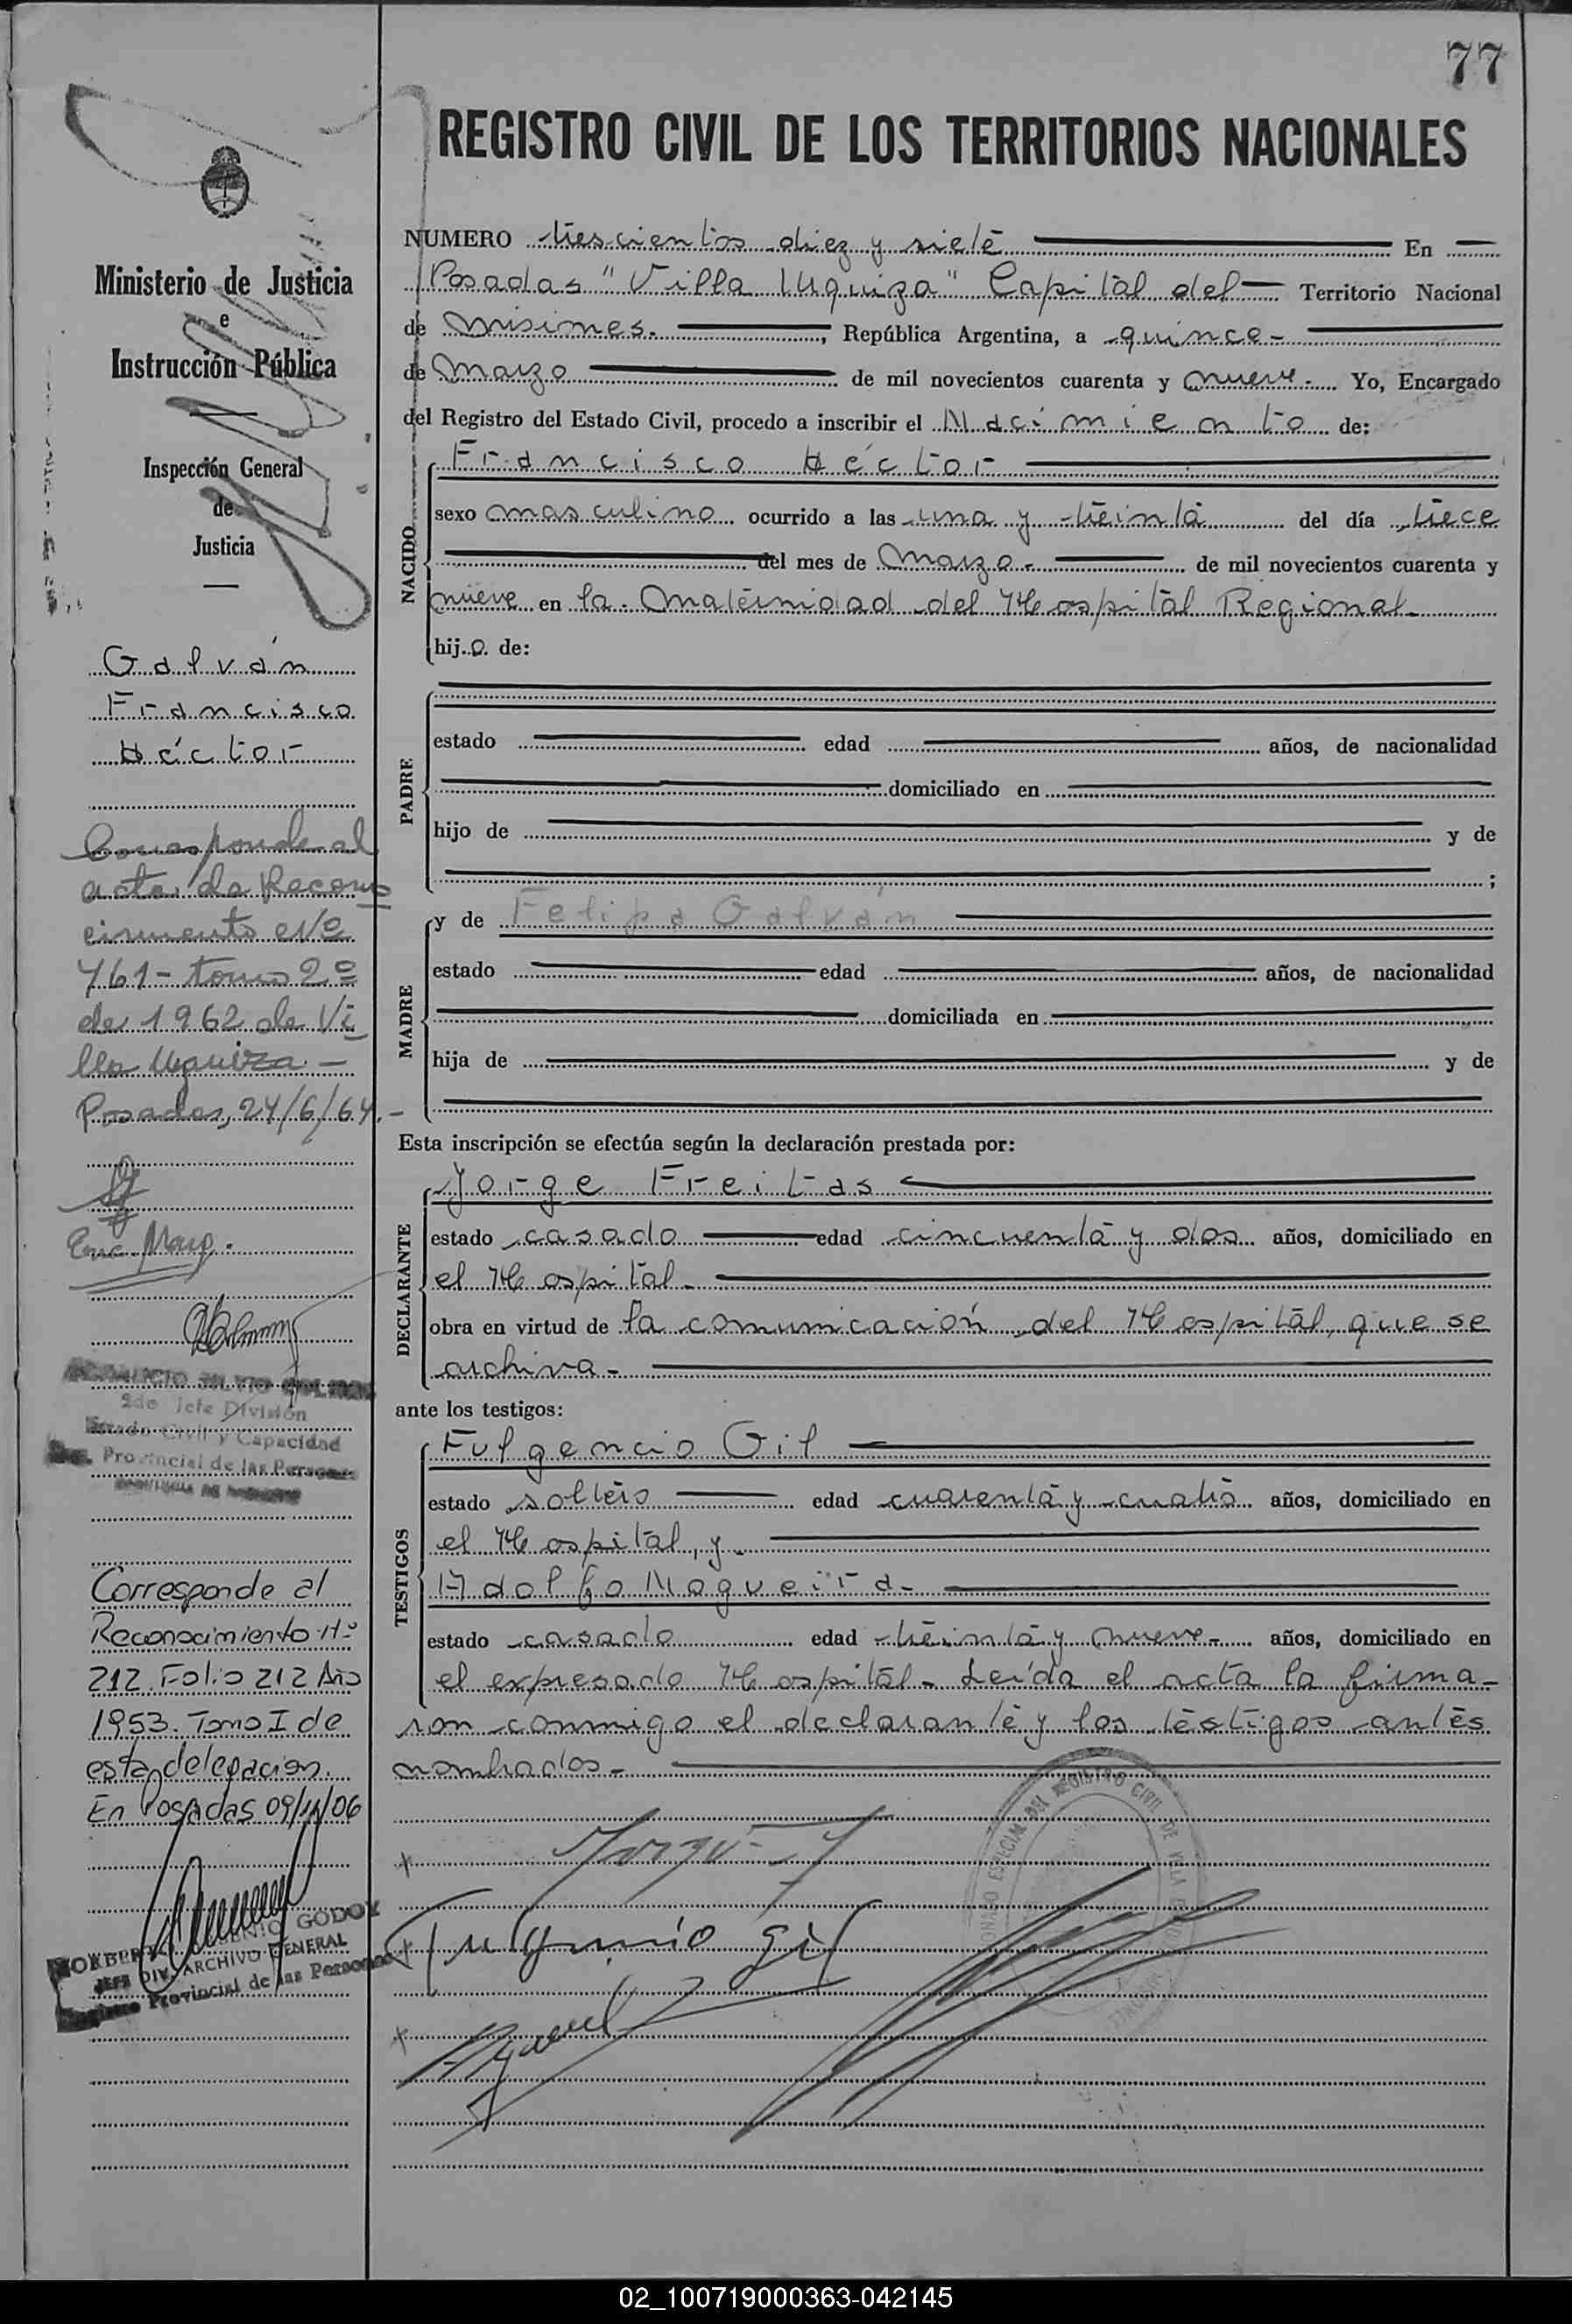 77
REGISTRO CIVIL DE LOS TERRITORIOS NACIONALES
NUMERO trescientos diez y siete En
Posadas "Villa Urquiza" Capital del Territorio Nacional
de Misiones. , República Argentina, a quince-
de Marzo de mil novecientos cuarenta y nueve. Yo, Encargado
del Registro del Estado Civil, procedo a inscribir el Nacimiento de:
NACIDO
Francisco Héctor
sexo masculino ocurrido a las una y treinta del día trece
del mes de Marzo- de mil novecientos cuarenta y
nueve en la Maternidad del Hospital Regional-
hijo de:
PADRE
estado edad años, de nacionalidad
domiciliado en
hijo de y de
;
MADRE
y de Felipa Galván
estado edad años, de nacionalidad
domiciliada en
hija de y de
Esta inscripción se efectúa según la declaración prestada por:
DECLARANTE
Jorge Freitas
estado casado edad cincuenta y dos años, domiciliado en
el Hospital-
obra en virtud de la comunicación del Hospital, que se
archiva-
ante los testigos:
TESTIGOS
Fulgencio Gil
estado soltero edad cuarenta y cuatro años, domiciliado en
el Hospital, y-
Adolfo Nogueira-
estado casado edad treinta y nueve- años, domiciliado en
el expresado Hospital- Leída el acta la firma-
ron conmigo el declarante y los testigos antes
nombrados-
Fulgencio Gil
Ministerio de Justicia
e
Instrucción Pública
Inspección General
de
Justicia
Galván
Francisco
Héctor
Corresponde al
acta de Recono
cimiento Nº
761- tomo 2º
de 1962 de Vi
lla Urquiza.-
Posadas, 24/6/64.-
2do Jefe División
Estado Civil y Capacidad
Provincial de las Personas
Corresponde al
Reconocimiento Nº
212. Folio 212 Año
1953. Tomo I de
esta delegacion.
En Posadas 09/11/06
GODOY
JEFE DIV. ARCHIVO GENERAL
Registro Provincial de las Personas
02_100719000363-042145